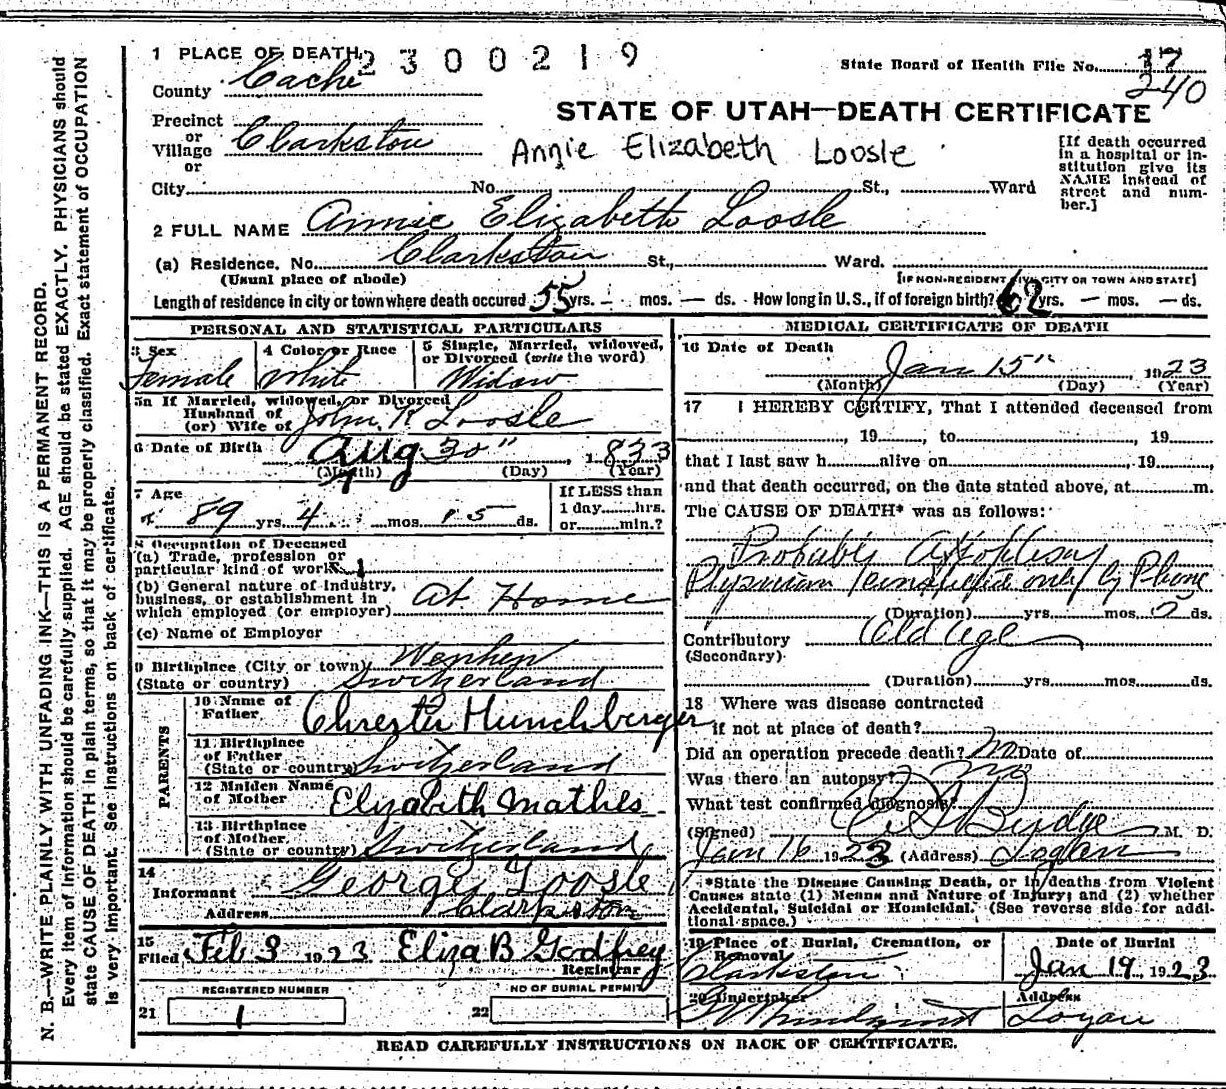 N. B.—WRITE PLAINLY WITH UNFADING INK—THIS IS A PERMANENT RECORD.
Every item of Information should be carefully supplied. AGE should be stated EXACTLY. PHYSICIANS should
state CAUSE OF DEATH in plain terms, so that it may be properly classified. Exact statement of OCCUPATION
is very important. See instructions on back of certificate.
1 PLACE OF DEATH 2300219
State Board of Health File No. 17
240
County Cache
STATE OF UTAH—DEATH CERTIFICATE
Precinct
or
Village Clarkston
or
Annie Elizabeth Loosle
[If death occurred
in a hospital or in-
stitution give its
NAME instead of
street and num-
ber.]
City No. St., Ward
2 FULL NAME Annie Elizabeth Loosle
(a) Residence. No. Clarkston St., Ward.
(Usual place of abode) [IF NON-RESIDENT GIVE CITY OR TOWN AND STATE]
Length of residence in city or town where death occured 55 yrs. — mos. — ds. How long in U.S., if of foreign birth? 62 yrs. — mos. — ds.
PERSONAL AND STATISTICAL PARTICULARS
3 Sex
Female
4 Color or Race
White
5 Single, Married, widowed,
or Divorced (write the word)
Widow
5a If Married, widowed, or Divorced
Husband of
(or) Wife of John K Loosle
6 Date of Birth Aug 30" 1833
(Month) (Day) (Year)
7 Age
89 yrs. 4 mos. 15 ds.
If LESS than
1 day hrs.
or min.?
8 Occupation of Deceased
(a) Trade, profession or
particular kind of work
(b) General nature of Industry,
business, or establishment in
which employed (or employer) At Home
(c) Name of Employer
9 Birthplace (City or town)
(State or country) Switzerland
PARENTS
10 Name of
Father
11 Birthplace
of Father
(State or country) Switzerland
12 Maiden Name
of Mother Elizabeth Mathes
13 Birthplace
of Mother
(State or country) Switzerland
14
Informant George Loosle
Address Clarkston
15
Filed Feb 3 1923 Eliza B Godfrey
Registrar
REGISTERED NUMBER
21 1
NO OF BURIAL PERMIT
22
MEDICAL CERTIFICATE OF DEATH
16 Date of Death
Jan 15" 1923
(Month) (Day) (Year)
17 I HEREBY CERTIFY, That I attended deceased from
, 19, to, 19
that I last saw h alive on, 19,
and that death occurred, on the date stated above, at m.
The CAUSE OF DEATH* was as follows:
Probably Apoplexy
Physician only by Phone
(Duration) yrs. mos. 2 ds.
Contributory Old Age
(Secondary)
(Duration) yrs. mos. ds.
18 Where was disease contracted
if not at place of death?
Did an operation precede death? No Date of
Was there an autopsy? No
What test confirmed diagnosis?
(Signed) Budge M. D.
Jan 16 1923 (Address) Logan
*State the Disease Causing Death, or in deaths from Violent
Causes state (1) Means and Nature of Injury; and (2) whether
Accidental, Suicidal or Homicidal. (See reverse side for addi-
tional space.)
19 Place of Burial, Cremation, or
Removal
Clarkston
Date of Burial
Jan 19 1923
20 Undertaker
Address
Logan
READ CAREFULLY INSTRUCTIONS ON BACK OF CERTIFICATE.